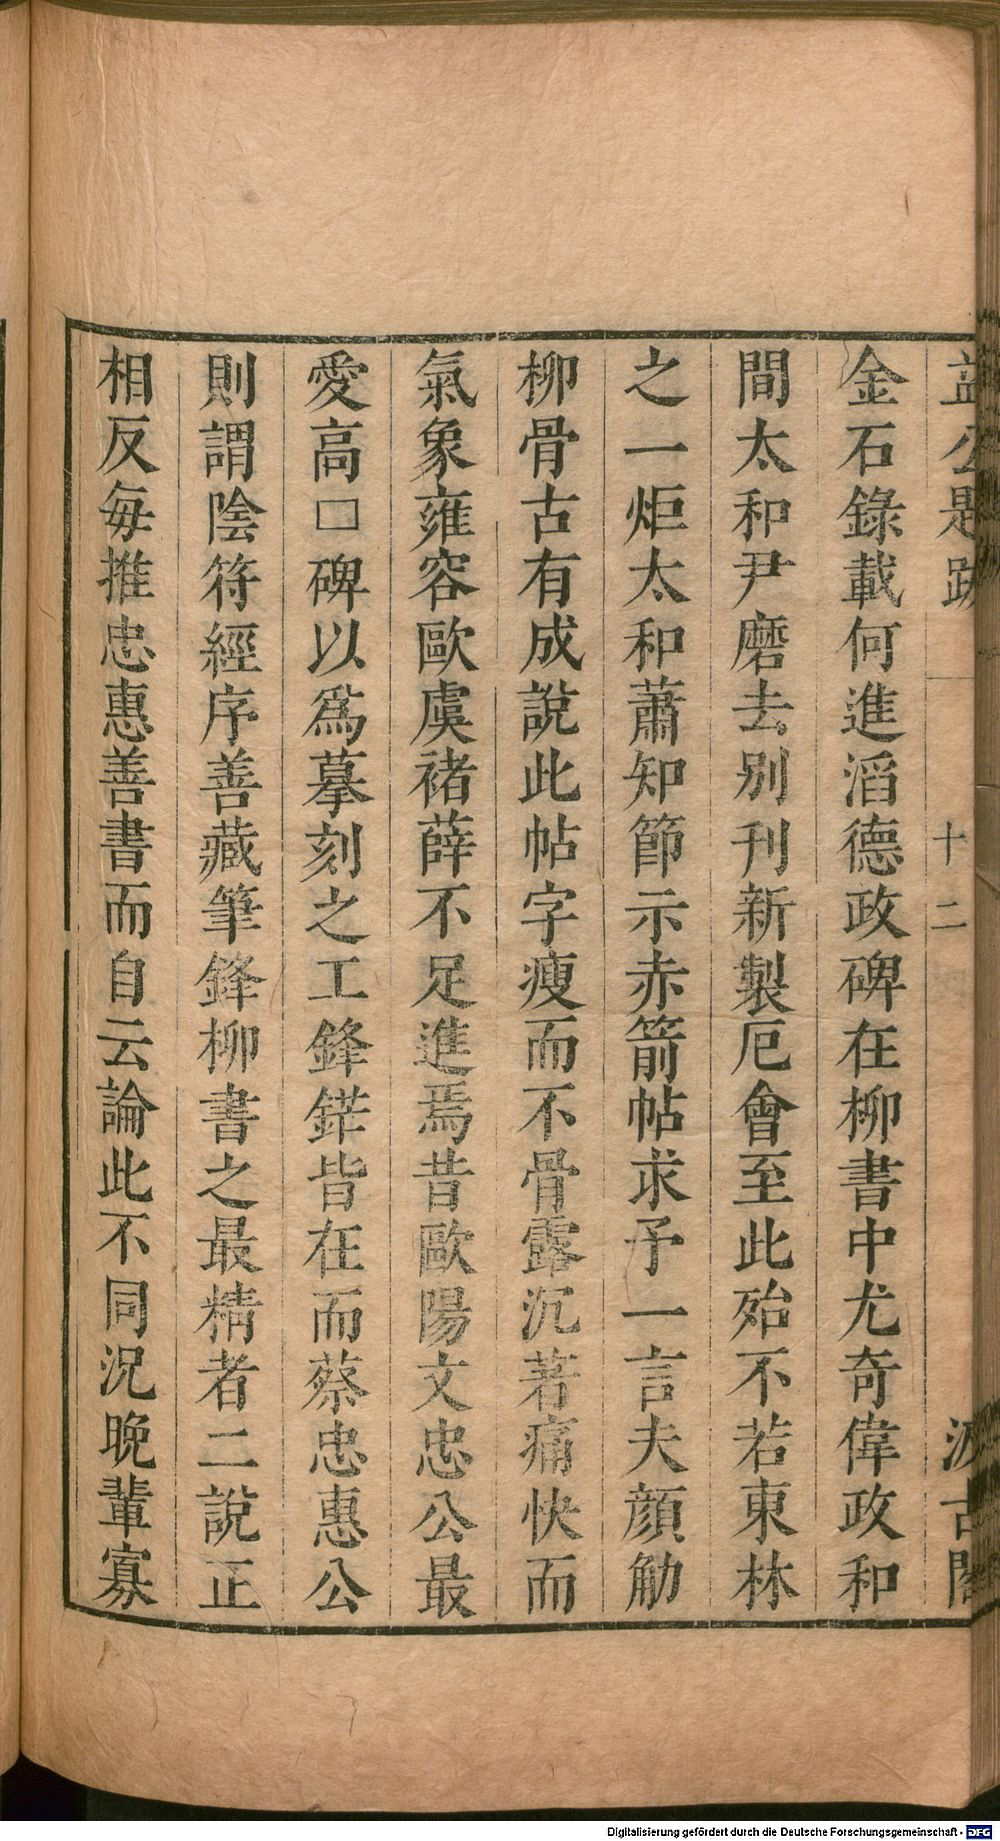 益公題跋 十二 汲古閣
金石錄載何進滔德政碑在柳書中尤奇偉政和
間太和尹磨去別刊新製厄會至此殆不若東林
之一炬太和蕭知節示赤箭帖求予一言夫顔觔
柳骨古有成說此帖字瘦而不骨露沉著痛快而
氣象雍容歐虞褚薛不足進焉昔歐陽文忠公最
愛高□碑以爲摹刻之工鋒鋩皆在而蔡忠惠公
則謂陰符經序善藏筆鋒柳書之最精者二說正
相反每推忠惠善書而自云論此不同況晚輩寡
Digitalisierung gefördert durch die Deutsche Forschungsgemeinschaft - DFG